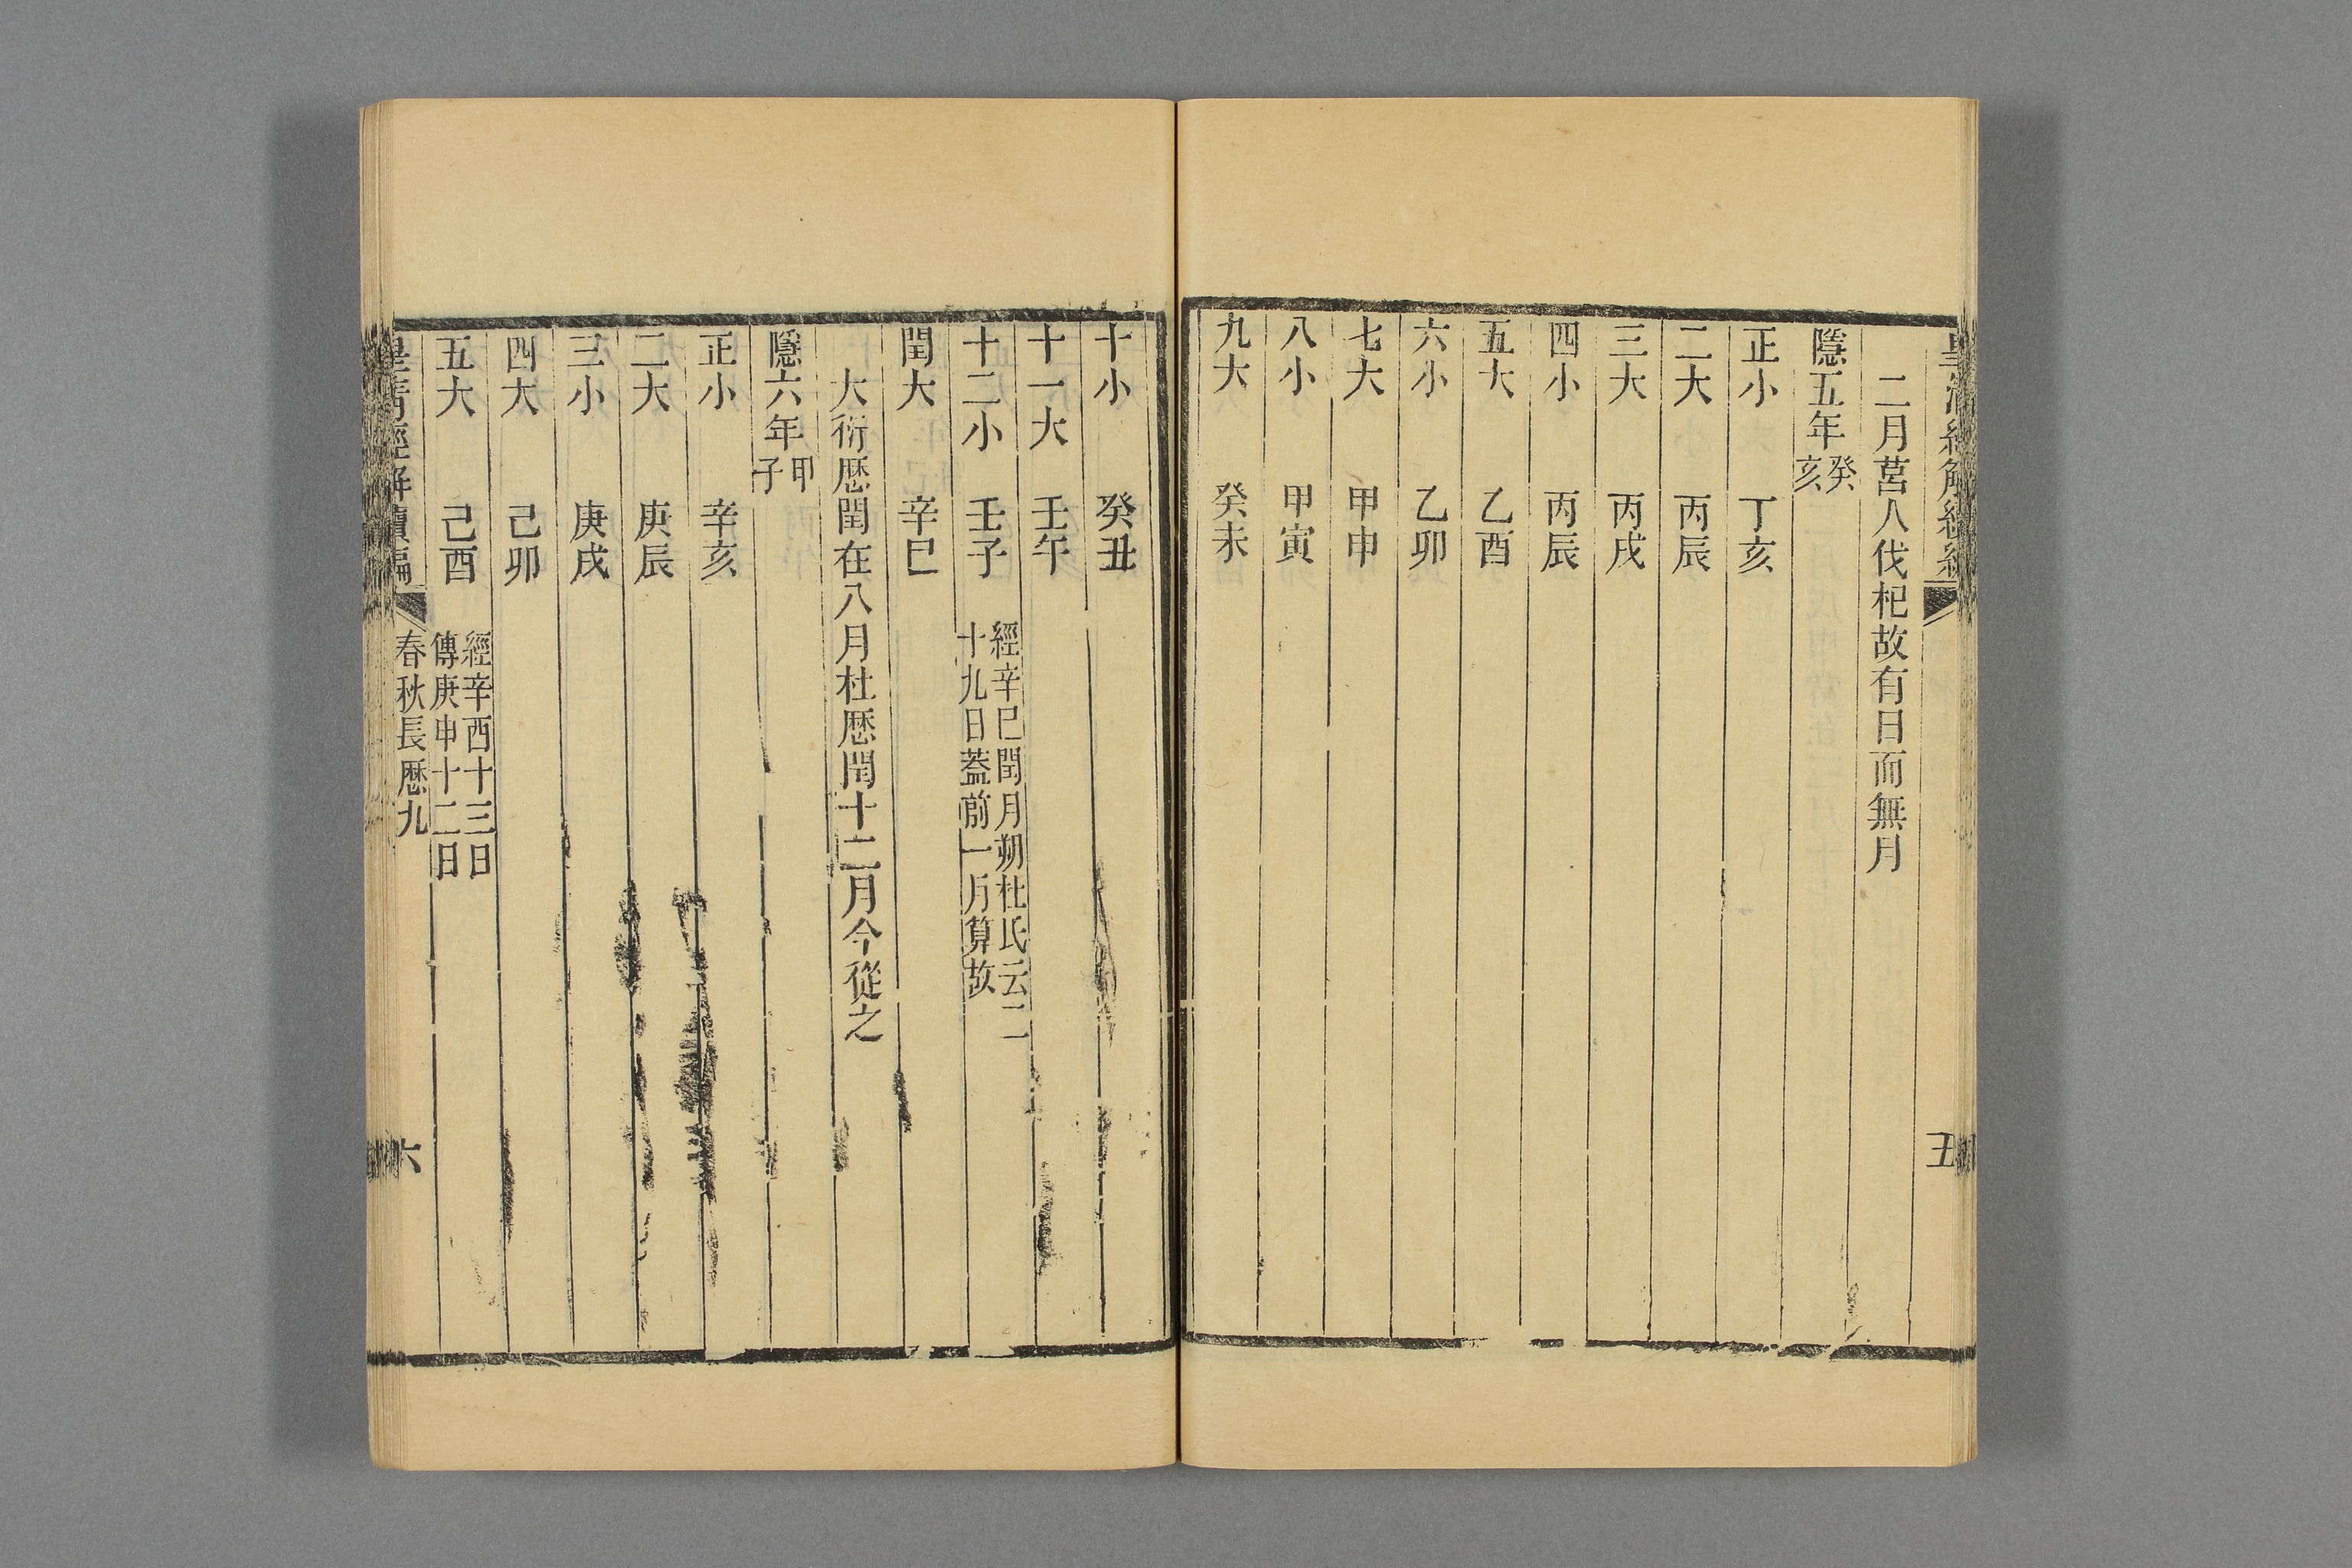 二月莒人伐杞故有日而無月
隱五年癸亥
正小 丁亥
二大 丙辰
三大 丙戌
四小 丙辰
五大 乙酉
六小 乙卯
七大 甲申
八小 甲寅
九大 癸未
五
十小 癸丑
十一大 壬午
十二小 壬子 經辛巳閏月朔杜氏云二十九日蓋前一月算故
閏大 辛巳
大衍厯閏在八月杜厯閏十二月今從之
隱六年甲子
正小 辛亥
二大 庚辰
三小 庚戌
四大 己卯
五大 己酉 經辛酉十三日傳庚申十二日
皇清經解續編 春秋長厯九 六